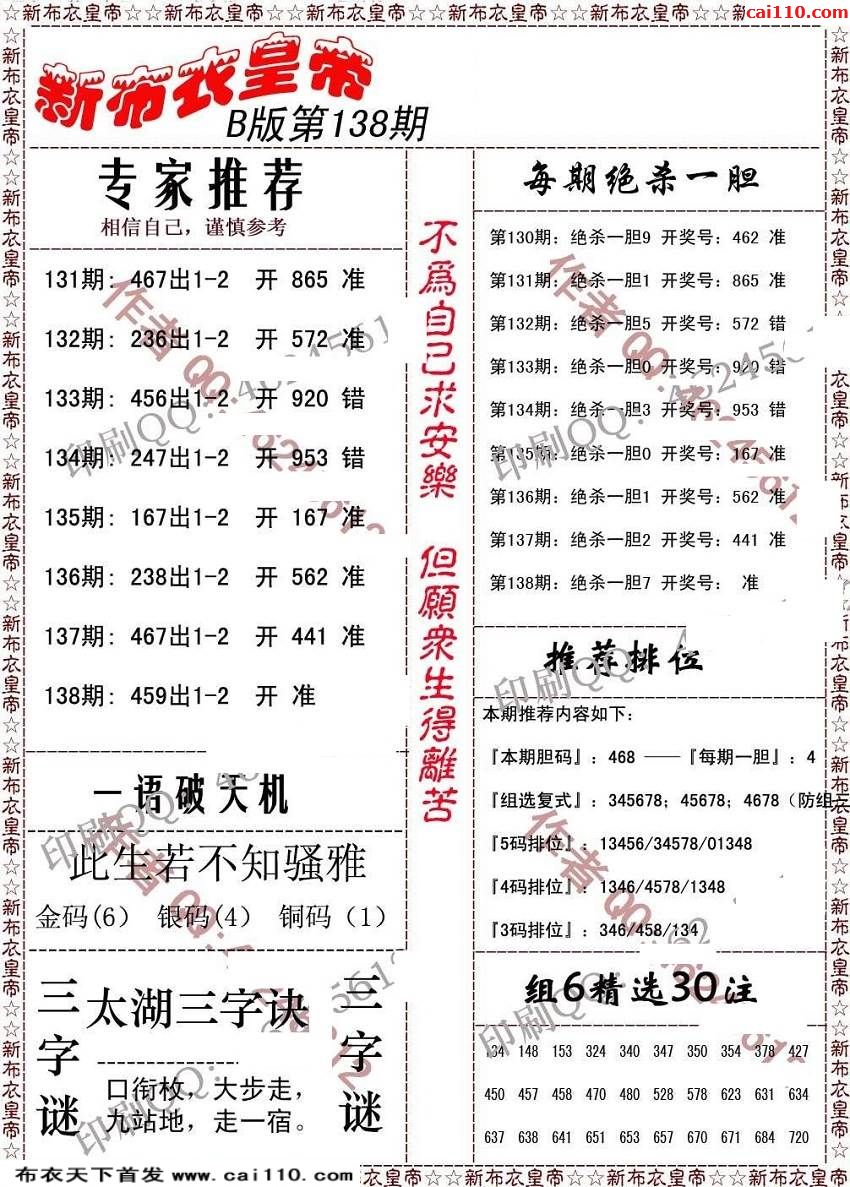 ☆☆新布衣皇帝☆☆新布衣皇帝☆☆新布衣皇帝☆☆新布衣皇帝☆☆新布衣皇帝☆☆新布衣皇帝☆☆
cai110.com
新布衣皇帝
B版第138期
专家推荐
相信自己，谨慎参考
131期: 467出1-2 开 865 准
132期: 236出1-2 开 572 准
133期: 456出1-2 开 920 错
134期: 247出1-2 开 953 错
135期: 167出1-2 开 167 准
136期: 238出1-2 开 562 准
137期: 467出1-2 开 441 准
138期: 459出1-2 开 准
一语破天机
此生若不知骚雅
金码(6) 银码(4) 铜码（1）
三字谜
太湖三字诀
口衔枚，大步走，
九站地，走一宿。
三字谜
不為自己求安樂 但願衆生得離苦
每期绝杀一胆
第130期: 绝杀一胆9 开奖号: 462 准
第131期: 绝杀一胆1 开奖号: 865 准
第132期: 绝杀一胆5 开奖号: 572 错
第133期: 绝杀一胆0 开奖号: 920 错
第134期: 绝杀一胆3 开奖号: 953 错
第135期: 绝杀一胆0 开奖号: 167 准
第136期: 绝杀一胆1 开奖号: 562 准
第137期: 绝杀一胆2 开奖号: 441 准
第138期: 绝杀一胆7 开奖号: 准
推荐排位
本期推荐内容如下:
『本期胆码』: 468 ——『每期一胆』: 4
『组选复式』: 345678; 45678; 4678（防组三
『5码排位』: 13456/34578/01348
『4码排位』: 1346/4578/1348
『3码排位』: 346/458/134
组6精选30注
134 148 153 324 340 347 350 354 378 427
450 457 458 470 480 528 578 623 631 634
637 638 641 651 653 657 670 671 684 720
布衣天下首发 www.cai110.com
衣皇帝☆☆新布衣皇帝☆☆新布衣皇帝☆☆新布衣皇帝☆☆